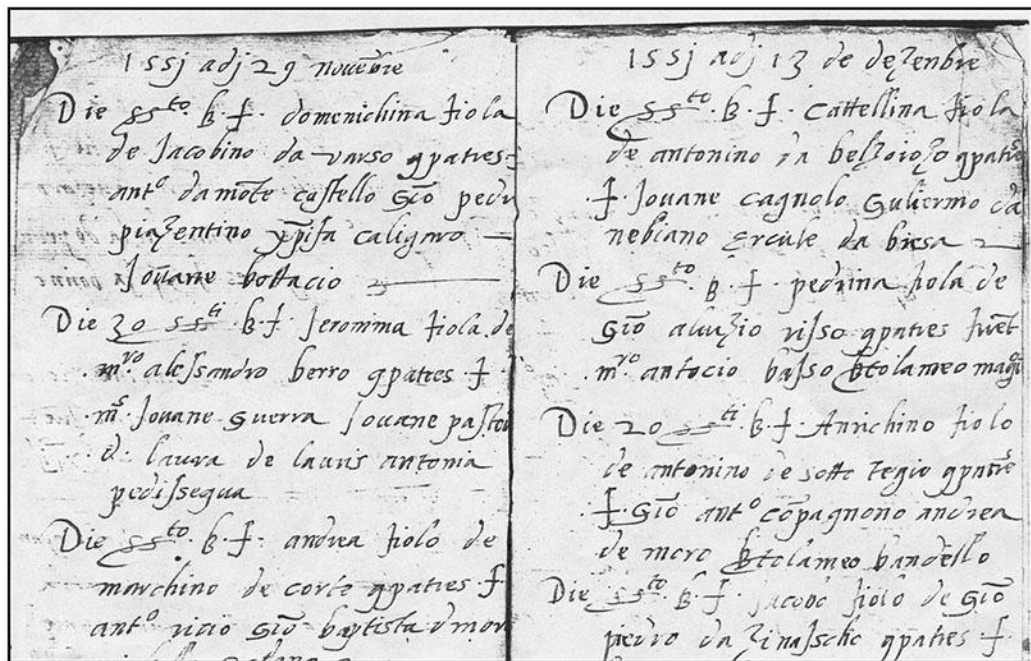 1551 adj 29 novẽbre
Die ss^to. b. f. domenichina fiola
de Jacobino da varso 9patres
ant^o damõte castello Giõ pedr
piazentino xp̃ifa caligaro
Jouane bottacio
Die 30 ss^ti. b. f. Jeromma fiola de
m^ro. alessandro berro 9patres f.
m^s. Jouane Guerra Jouane pastor
d. laura de lauris antonia
pedissequa
Die ss^to. b. f. andrea fiolo de
marchino de corte 9patres f
ant^o ricio Giõ baptista d mor
1551 adj 13 de dezenbre
Die ss^to. b. f. Cattellina fiola
de antonino da belzoiozo 9patres
f. Jouane cagnolo Guliermo da
nebiano Ercule da bresa
Die ss^to. b. f. pedrina fiola de
Giõ aluizio risso 9patres
m^ro. antocio basso btolameo
Die 20 ss^ti. b. f. Anrichino fiolo
de antonino de sotto regio 9patres
f. Giõ ant^o cõpagnono andrea
de moro btolameo bandello
Die ss^to. b. f. Jacobo fiolo de Giõ
piedro da zinascho 9patres f.